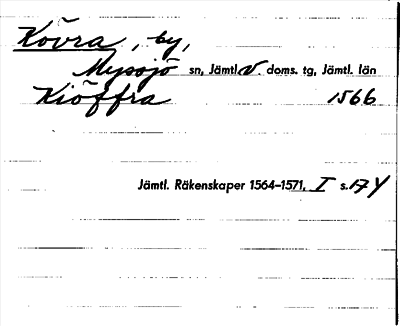 Kövra, by,
Myssjö sn, Jämtl. V. doms. tg, Jämtl. län
Kiöffra 1566
Jämtl. Räkenskaper 1564–1571, I s.